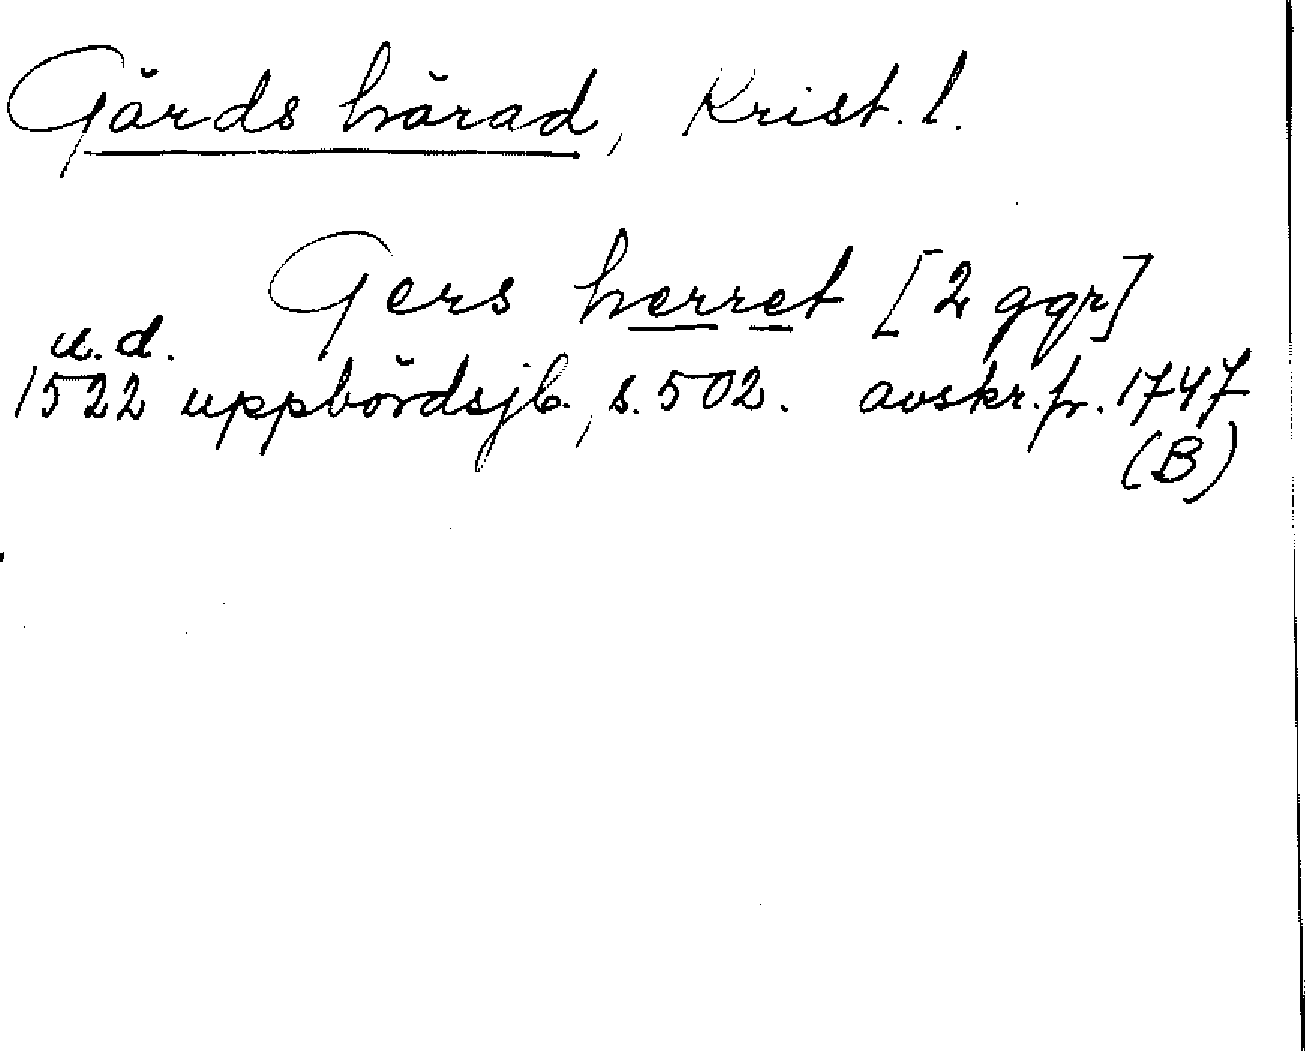 Gärds härad, Krist. l.
Gers herret [2 ggr]
u. d.
1522 uppbördsjb., s. 502. avskr. fr. 1747
(B)